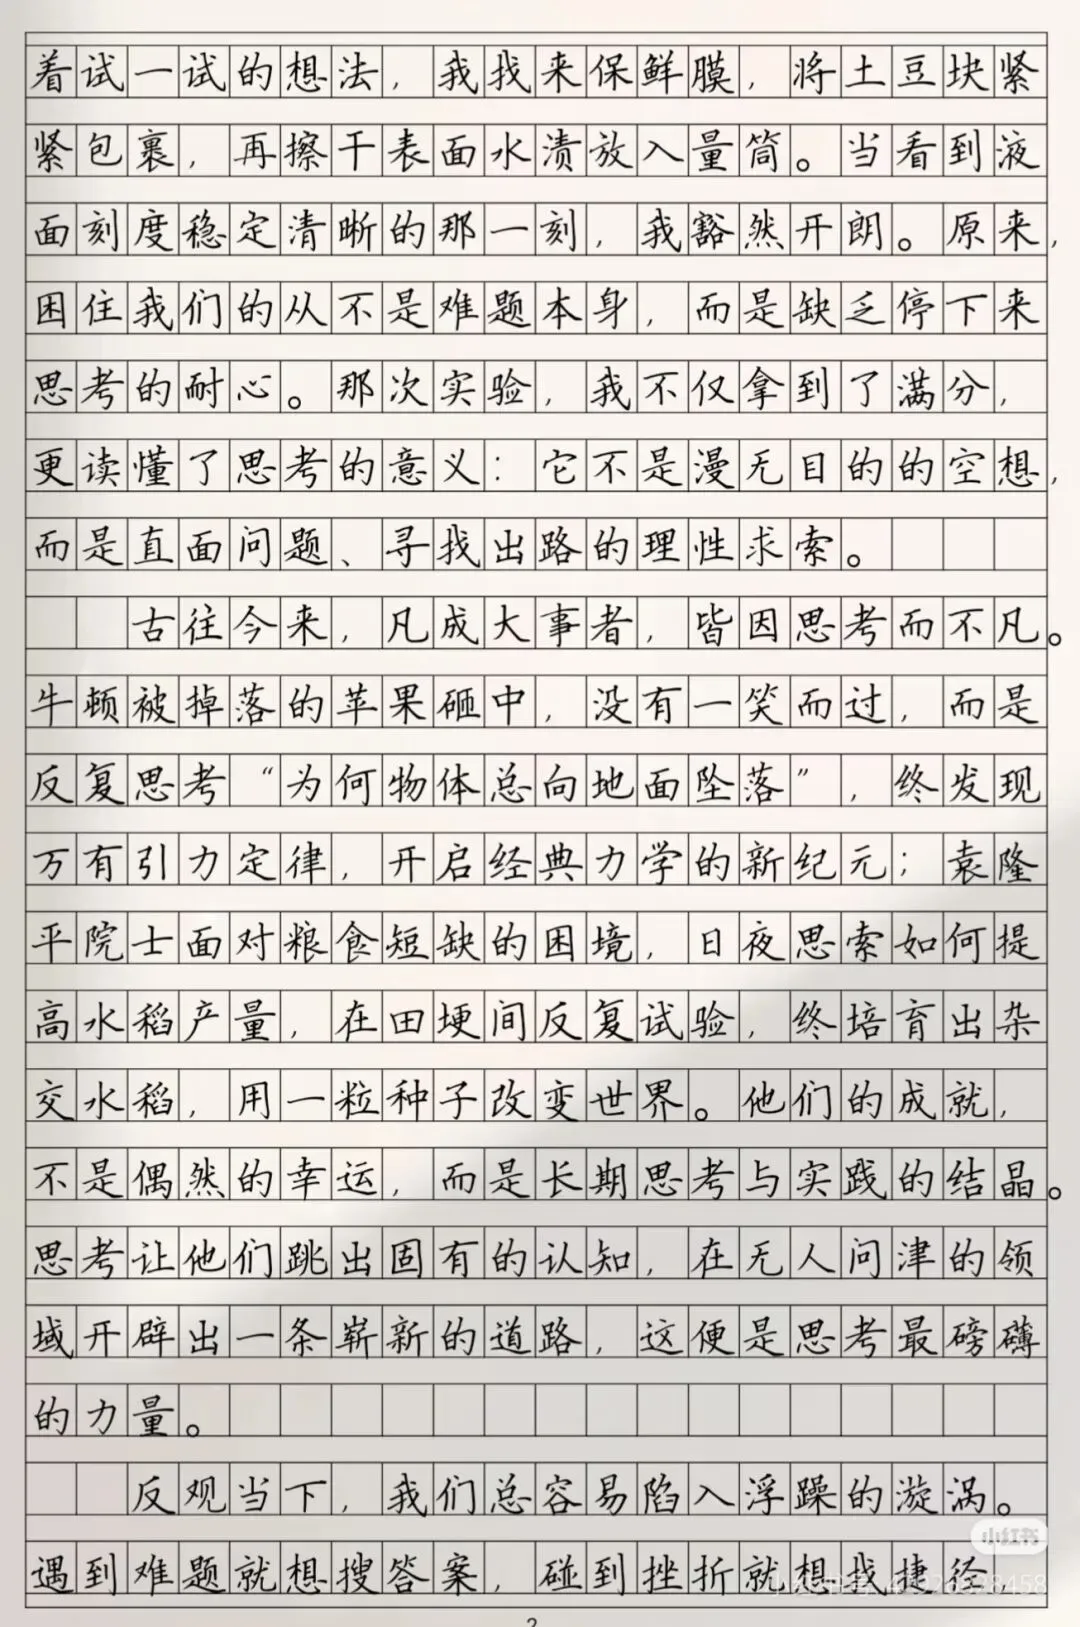 着试一试的想法，我找来保鲜膜，将土豆块紧
紧包裹，再擦干表面水渍放入量筒。当看到液
面刻度稳定清晰的那一刻，我豁然开朗。原来，
困住我们的从不是难题本身，而是缺乏停下来
思考的耐心。那次实验，我不仅拿到了满分，
更读懂了思考的意义：它不是漫无目的的空想，
而是直面问题、寻找出路的理性求索。
古往今来，凡成大事者，皆因思考而不凡。
牛顿被掉落的苹果砸中，没有一笑而过，而是
反复思考“为何物体总向地面坠落”，终发现
万有引力定律，开启经典力学的新纪元；袁隆
平院士面对粮食短缺的困境，日夜思索如何提
高水稻产量，在田埂间反复试验，终培育出杂
交水稻，用一粒种子改变世界。他们的成就，
不是偶然的幸运，而是长期思考与实践的结晶。
思考让他们跳出固有的认知，在无人问津的领
域开辟出一条崭新的道路，这便是思考最磅礴
的力量。
反观当下，我们总容易陷入浮躁的漩涡。
小红书
遇到难题就想搜答案，碰到挫折就想找捷径，
2